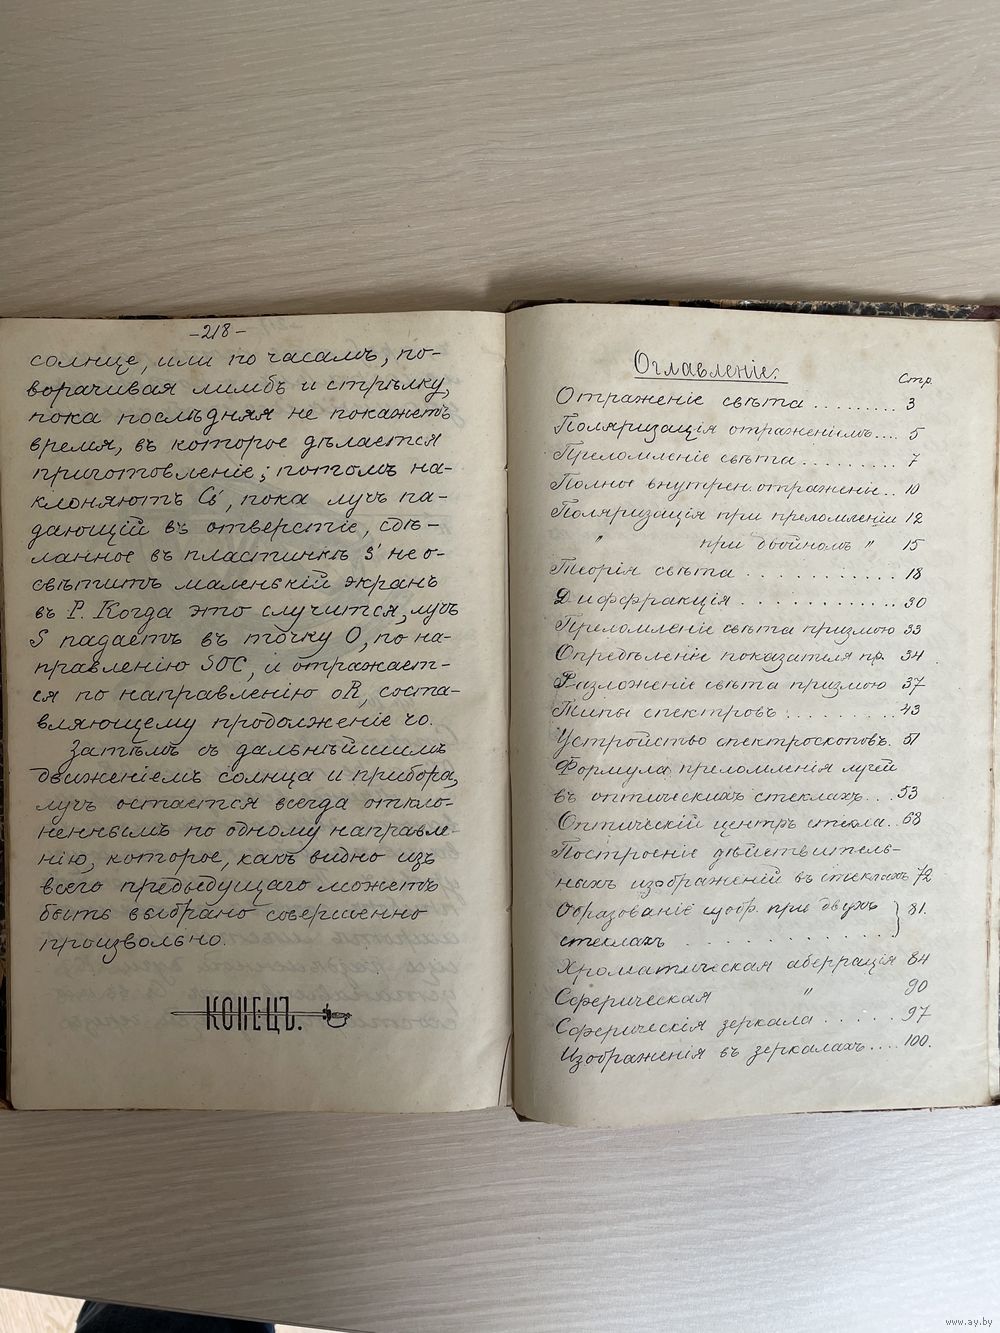 -218-
солнце, или по часамъ, по-
ворачивая лимбъ и стрѣлку,
пока послѣдняя не покажетъ
время, въ которое дѣлается
приготовленіе; потомъ на-
клоняютъ Cs', пока лучъ па-
дающій въ отверстіе, сдѣ-
ланное въ пластинкѣ s' не о-
свѣтитъ маленькій экранъ
въ P. Когда это случится, лучъ
S падаетъ въ точку O, по на-
правленію SOC, и отражает-
ся по направленію oR, соста-
вляющему продолженіе чо.
Затѣмъ съ дальнѣйшимъ
движеніемъ солнца и прибора,
лучъ остается всегда откло-
неннымъ по одному направле-
нію, которое, какъ видно изъ
всего предыдущаго можетъ
быть выбрано совершенно
произвольно.
КОНЕЦЪ.
Оглавленіе:
Стр.
Отраженіе свѣта ......... 3
Поляризація отраженіемъ.... 5
Преломленіе свѣта ......... 7
Полное внутрен. отраженіе.. 10
Поляризація при преломленіи 12
" при двойномъ " 15
Теорія свѣта ............ 18
Диффракція ............ 30
Преломленіе свѣта призмою 33
Опредѣленіе показателя пр. 34
Разложеніе свѣта призмою 37
Типы спектровъ ......... 43
Устройство спектроскоповъ. 51
Формула преломленія лучей
въ оптическихъ стеклахъ... 53
Оптическій центръ стекла.. 68
Построеніе дѣйствитель-
ныхъ изображеній въ стеклахъ 72
Образованіе изобр. при двухъ } 81.
стеклахъ ..............
Хроматическая аберрація 84
Сферическая " 90
Сферическія зеркала ...... 97
Изображенія въ зеркалахъ.... 100.
www.ay.by